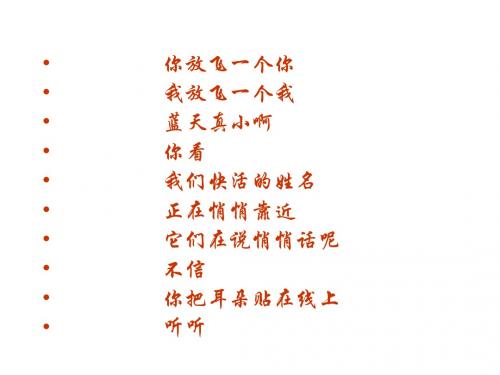 • 你放飞一个你
• 我放飞一个我
• 蓝天真小啊
• 你看
• 我们快活的姓名
• 正在悄悄靠近
• 它们在说悄悄话呢
• 不信
• 你把耳朵贴在线上
• 听听